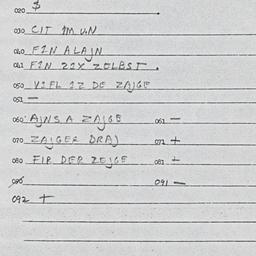 020 $
030 CIT IM UN
040 FIN ALAJN
041 FIN ZIX ZELBST.
050 VIFL IZ DE ZAJGE
051 —
060 AJNS A ZAJGE 061 —
070 ZAJGER DRAJ 071 +
080 FIR DER ZEJGE 081 +
090 091 —
092 +